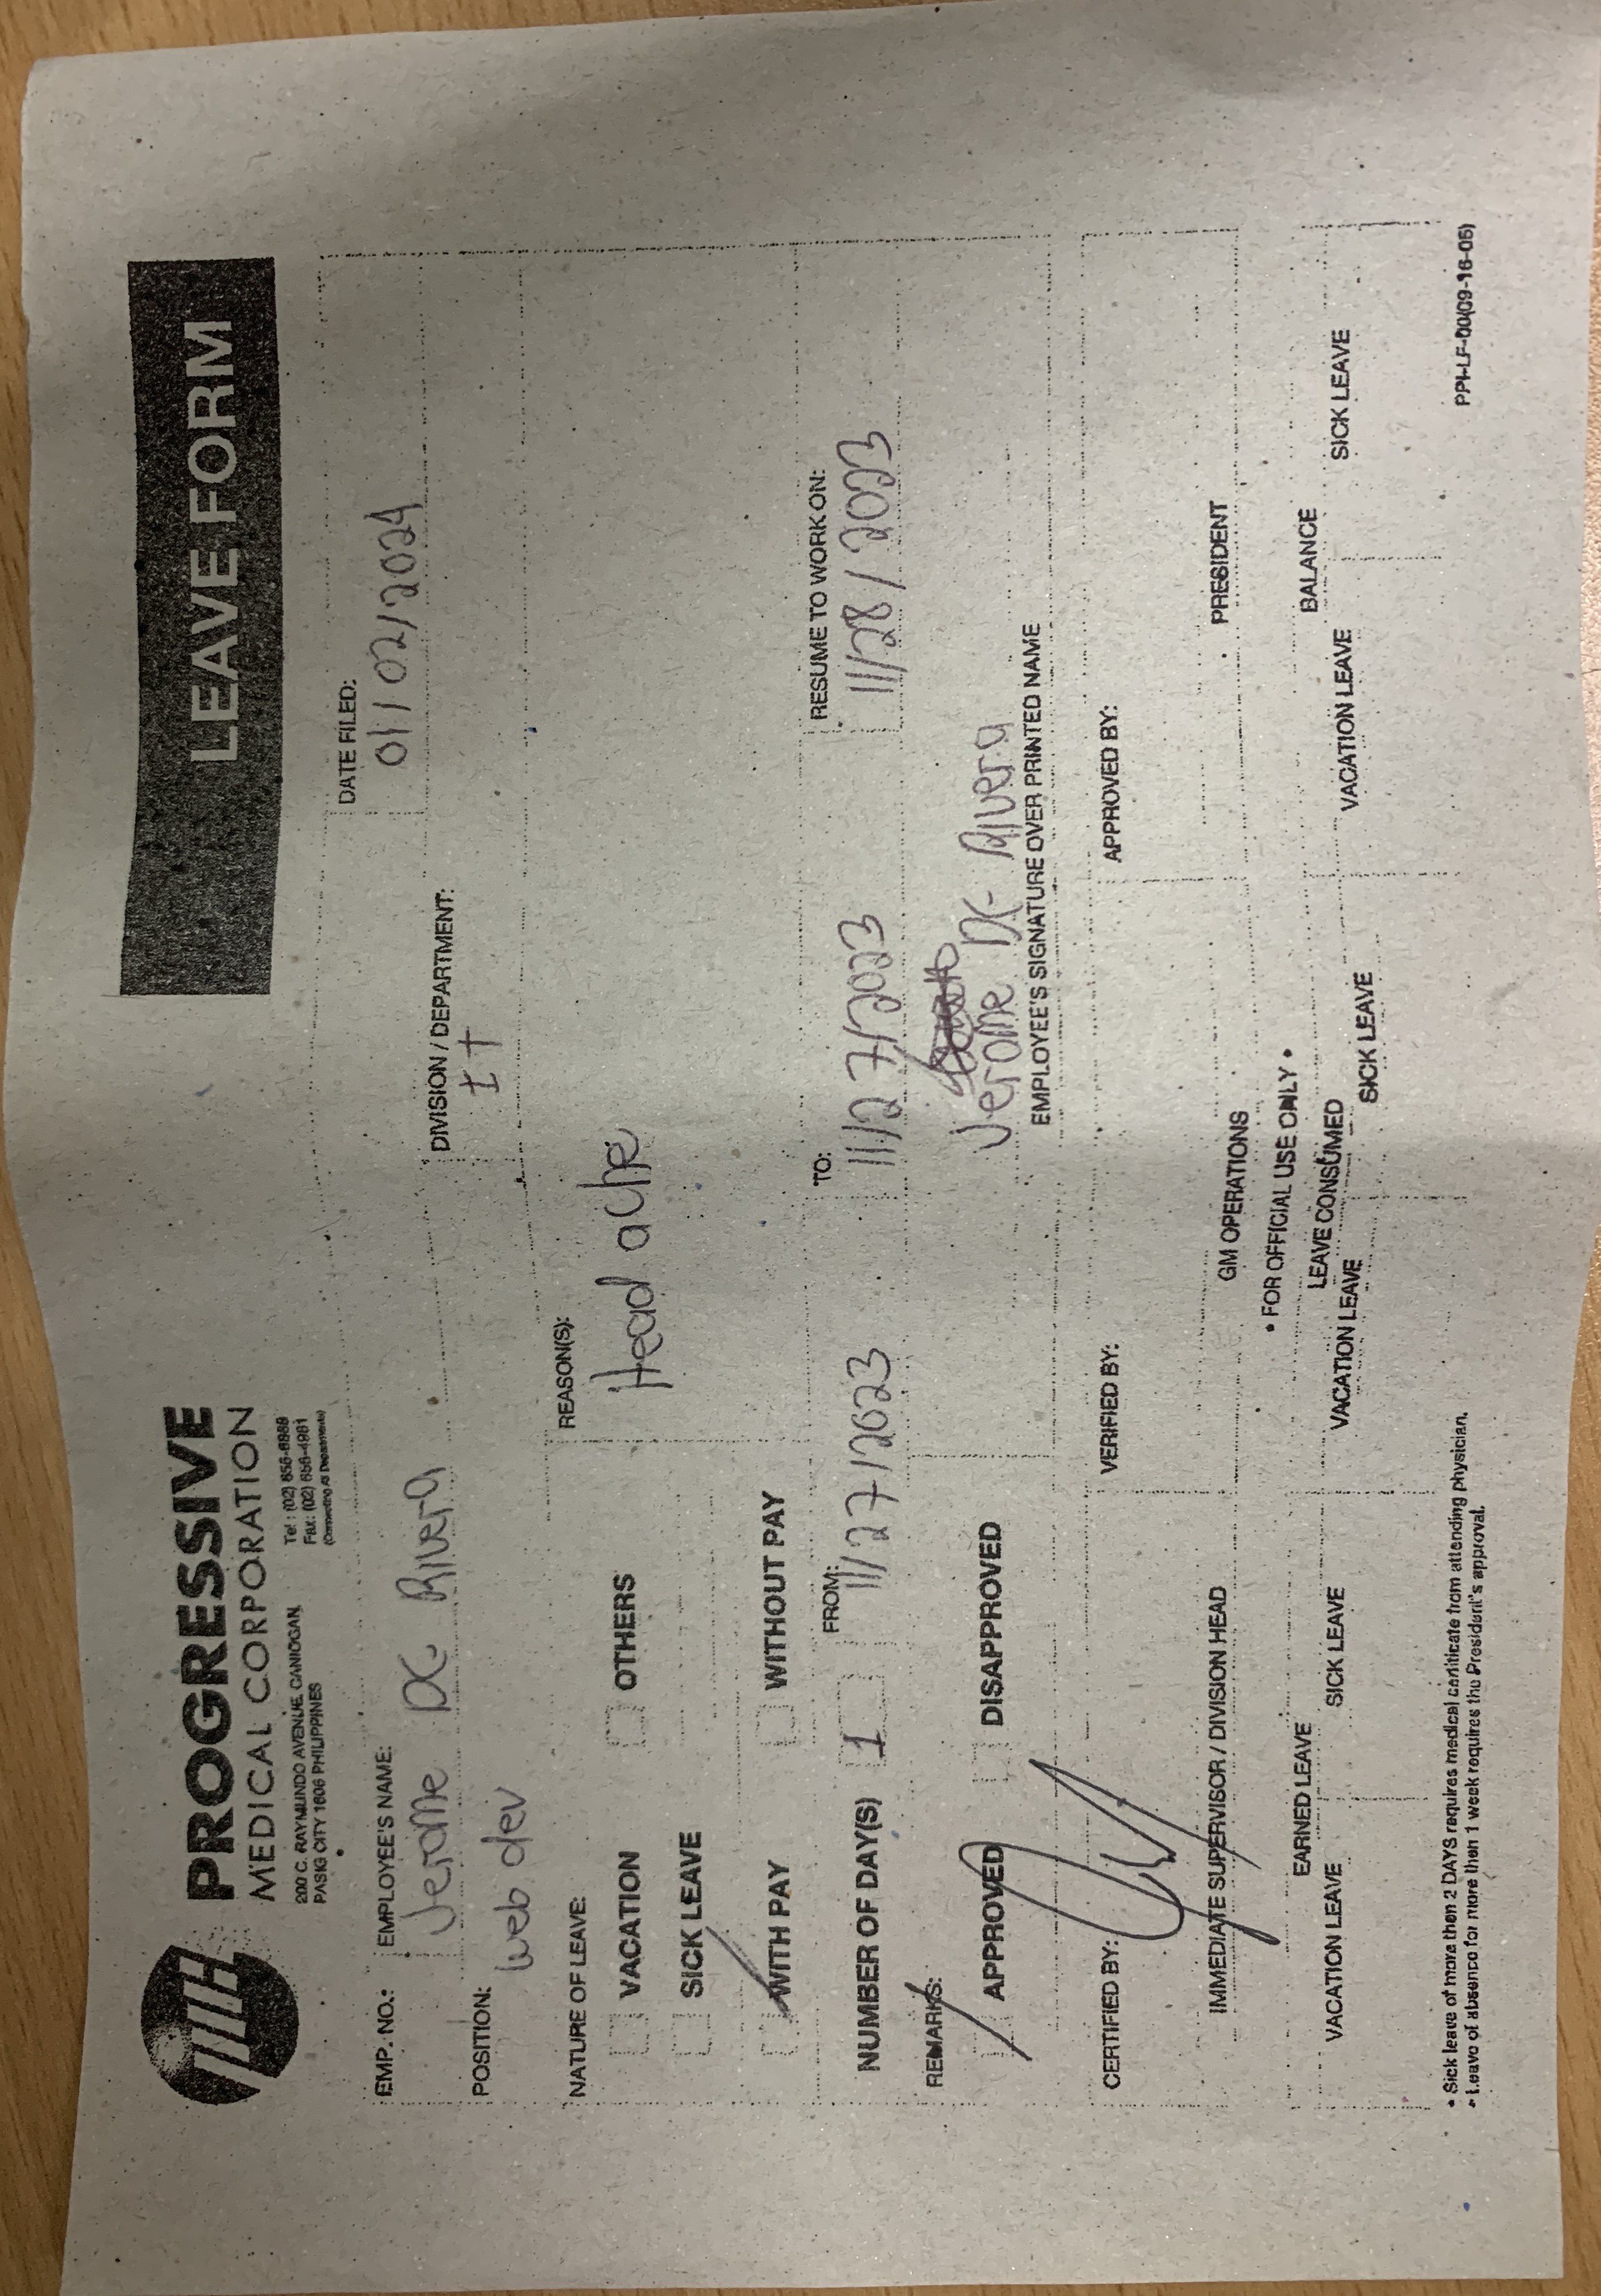 PROGRESSIVE
MEDICAL CORPORATION
200 C. RAYMUNDO AVENUE, CANIOGAN,
PASIG CITY 1606 PHILIPPINES
Tel : (02) 656-6988
Fax: (02) 656-4981
(Connecting All Departments)
LEAVE FORM
EMP. NO.: EMPLOYEE'S NAME: DATE FILED:
Jerome DC. Rivera 01/02/2024
POSITION: DIVISION / DEPARTMENT:
web dev IT
NATURE OF LEAVE: REASON(S):
VACATION OTHERS Head ache
SICK LEAVE
WITH PAY WITHOUT PAY
NUMBER OF DAY(S) 1 FROM: 11/27/2023 TO: 11/27/2023 RESUME TO WORK ON: 11/28/2023
REMARKS:
APPROVED DISAPPROVED
Jerome DC- Rivera
EMPLOYEE'S SIGNATURE OVER PRINTED NAME
CERTIFIED BY: VERIFIED BY: APPROVED BY:
IMMEDIATE SUPERVISOR / DIVISION HEAD GM OPERATIONS PRESIDENT
• FOR OFFICIAL USE ONLY •
EARNED LEAVE LEAVE CONSUMED BALANCE
VACATION LEAVE SICK LEAVE VACATION LEAVE SICK LEAVE VACATION LEAVE SICK LEAVE
• Sick leave of more then 2 DAYS requires medical certificate from attending physician.
• Leave of absence for more then 1 week requires the President's approval.
PPI-LF-00(09-16-05)